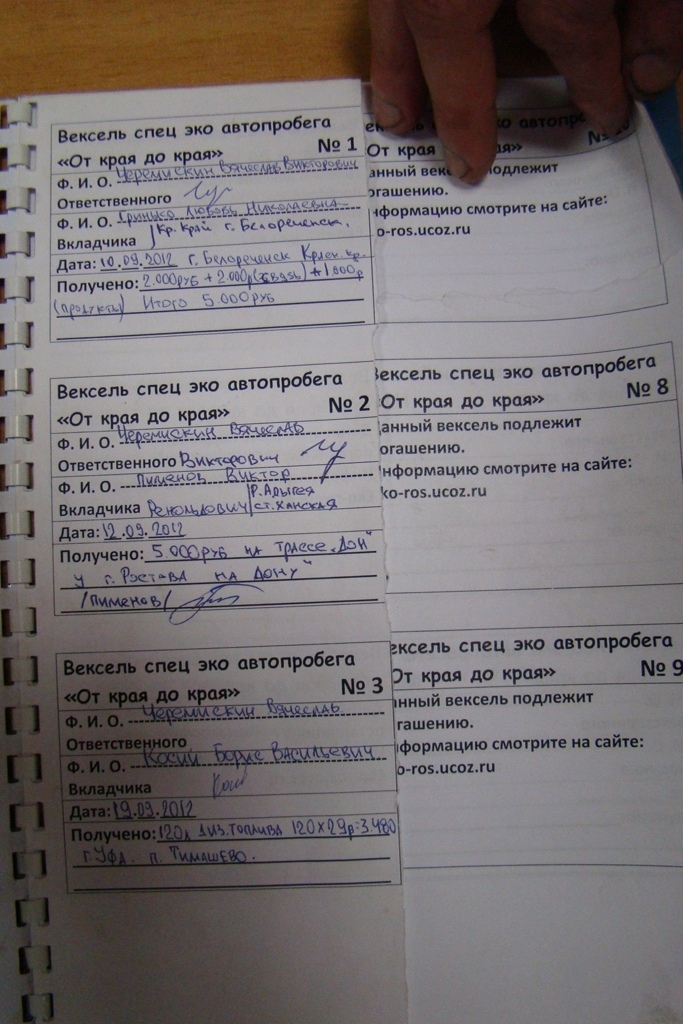 Вексель спец эко автопробега
«От края до края» № 1
Ф. И. О. Черемискин Вячеслав Викторович
Ответственного
Ф. И. О. Гринько Любовь Николаевна
Вкладчика Кр. край г. Белореченск.
Дата: 10.09.2012 г. Белореченск
Получено: 2.000руб + 2.000р + 1000р
(продукты) Итого 5.000руб
Вексель спец эко автопробега
«От края до края» № 2
Ф. И. О. Черемискин Вячеслав
Ответственного Викторович
Ф. И. О. Пименов Виктор
Вкладчика Ренольдович Р. Адыгея
ст. Ханская
Дата: 12.09.2012
Получено: 5.000руб на трассе „Дон"
у г.Ростова на Дону"
/Пименов/
Вексель спец эко автопробега
«От края до края» № 3
Ф. И. О. Черемискин Вячеслав
Ответственного
Ф. И. О. Косин Борис Васильевич
Вкладчика
Дата: 19.09.2012
Получено: 120л диз.топлива 120х29р=3.480
г. Уфа. п. Тимашево.
От края до края»
анный вексель подлежит
огашению.
нформацию смотрите на сайте:
o-ros.ucoz.ru
Вексель спец эко автопробега
От края до края» № 8
анный вексель подлежит
огашению.
нформацию смотрите на сайте:
ko-ros.ucoz.ru
ексель спец эко автопробега
От края до края» № 9
нный вексель подлежит
гашению.
формацию смотрите на сайте:
o-ros.ucoz.ru